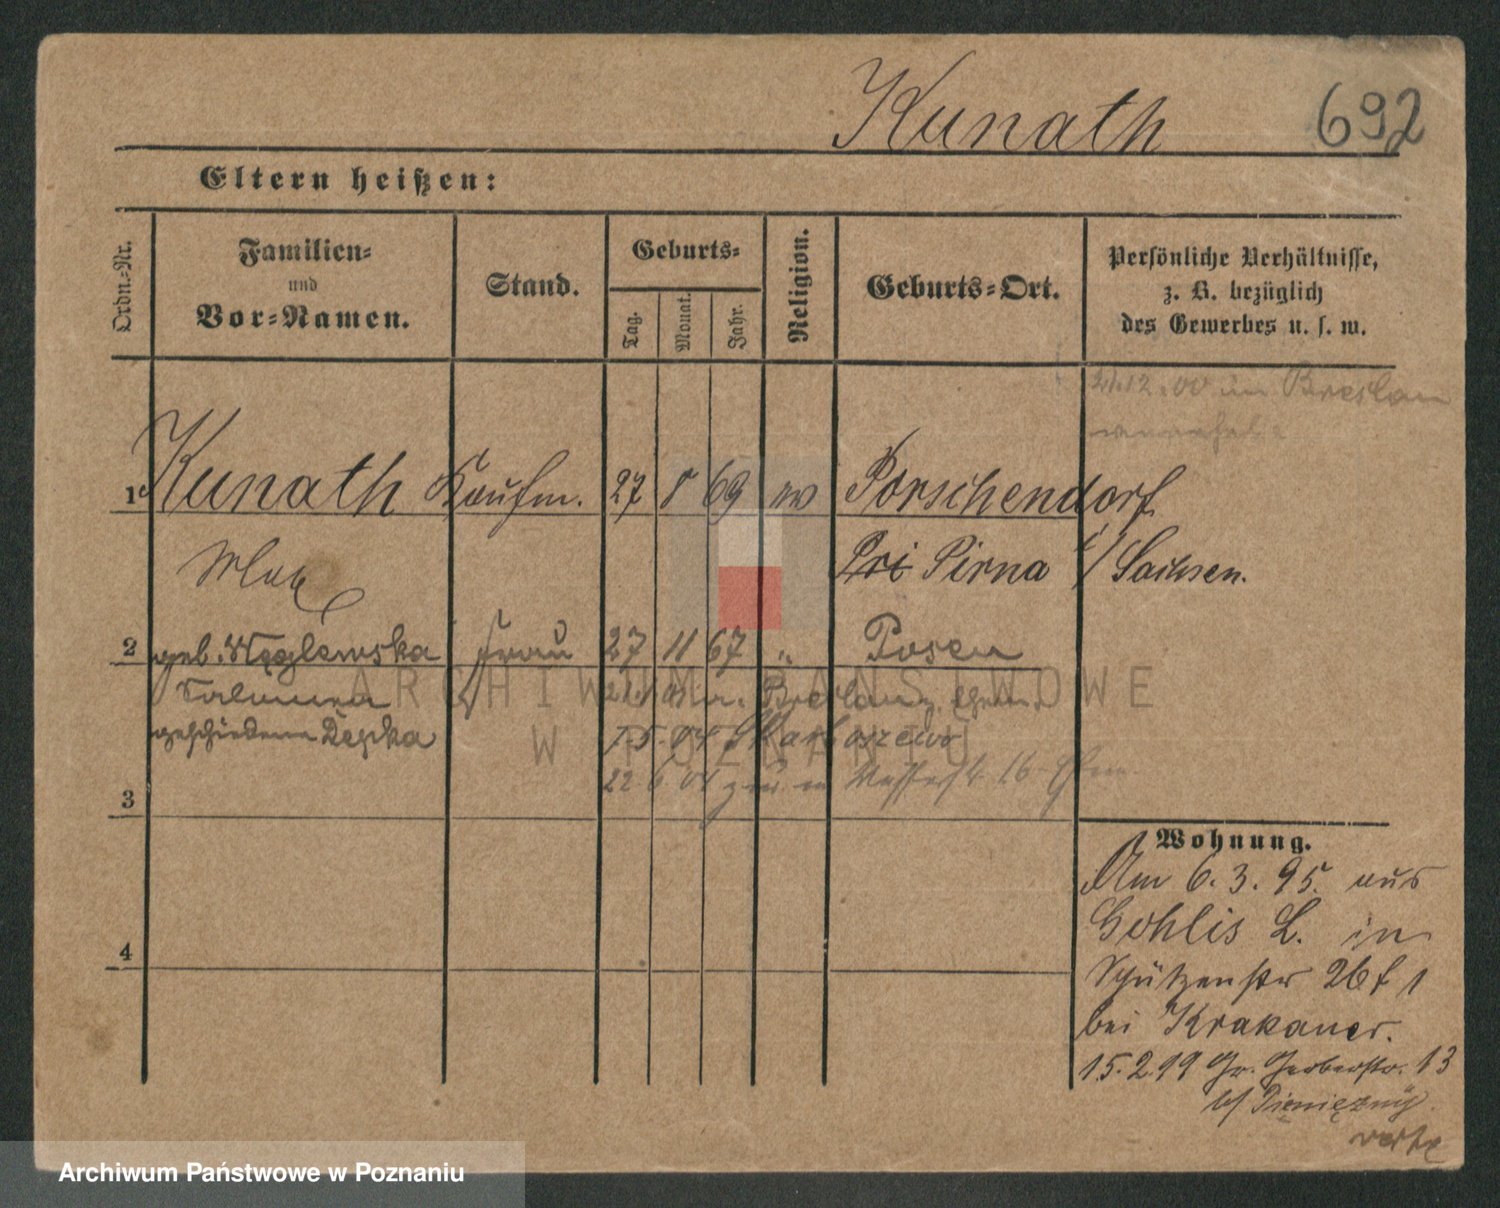 Kunath 692
Eltern heißen:
Ordn.-Nr.
Familien-
und
Vor-Namen.
Stand.
Geburts-
Tag.
Monat.
Jahr.
Religion.
Geburts-Ort.
Persönliche Verhältnisse,
z. B. bezüglich
des Gewerbes u. s. w.
21.12.00 in Breslau
1 Kunath Kaufm. 27 8 69 ev Porschendorf
Max Pri Pirna i/ Sachsen.
2 geb. Węglewska Frau 27 11 67 " Posen
Breslau
geschiedene Depka 7.5.04
3 22 6 04
Wohnung.
Am 6.3.95. aus
Gohlis L. in
Schützenstr 26 f 1
bei Krakauer.
15.2.99 Gr. Gerberstr. 13
b/ Pieniężny
verte
4
ARCHIWUM PAŃSTWOWE
W POZNANIU
Archiwum Państwowe w Poznaniu